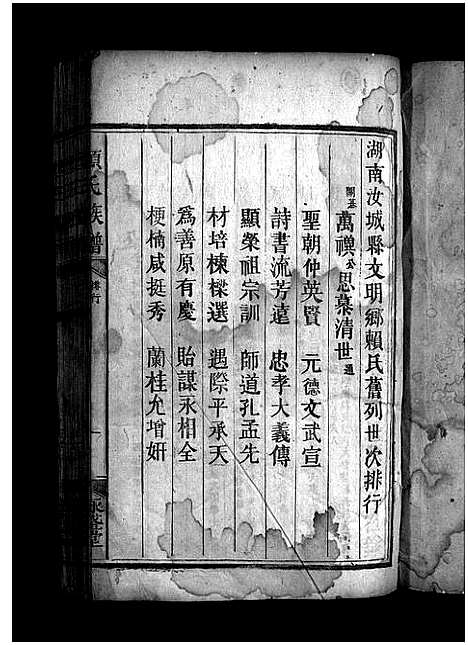 湖南汝城縣文明鄉賴氏舊列世次排行
開基萬禩公思慕清世通
聖朝仲英賢　元德文武宣
詩書流芳遠　忠孝大義傳
顯榮祖宗訓　師道孔孟先
材培棟樑選　遇際平承天
爲善原有慶　貽謀永相全
梗楠咸挺秀　蘭桂允增妍
氏族譜